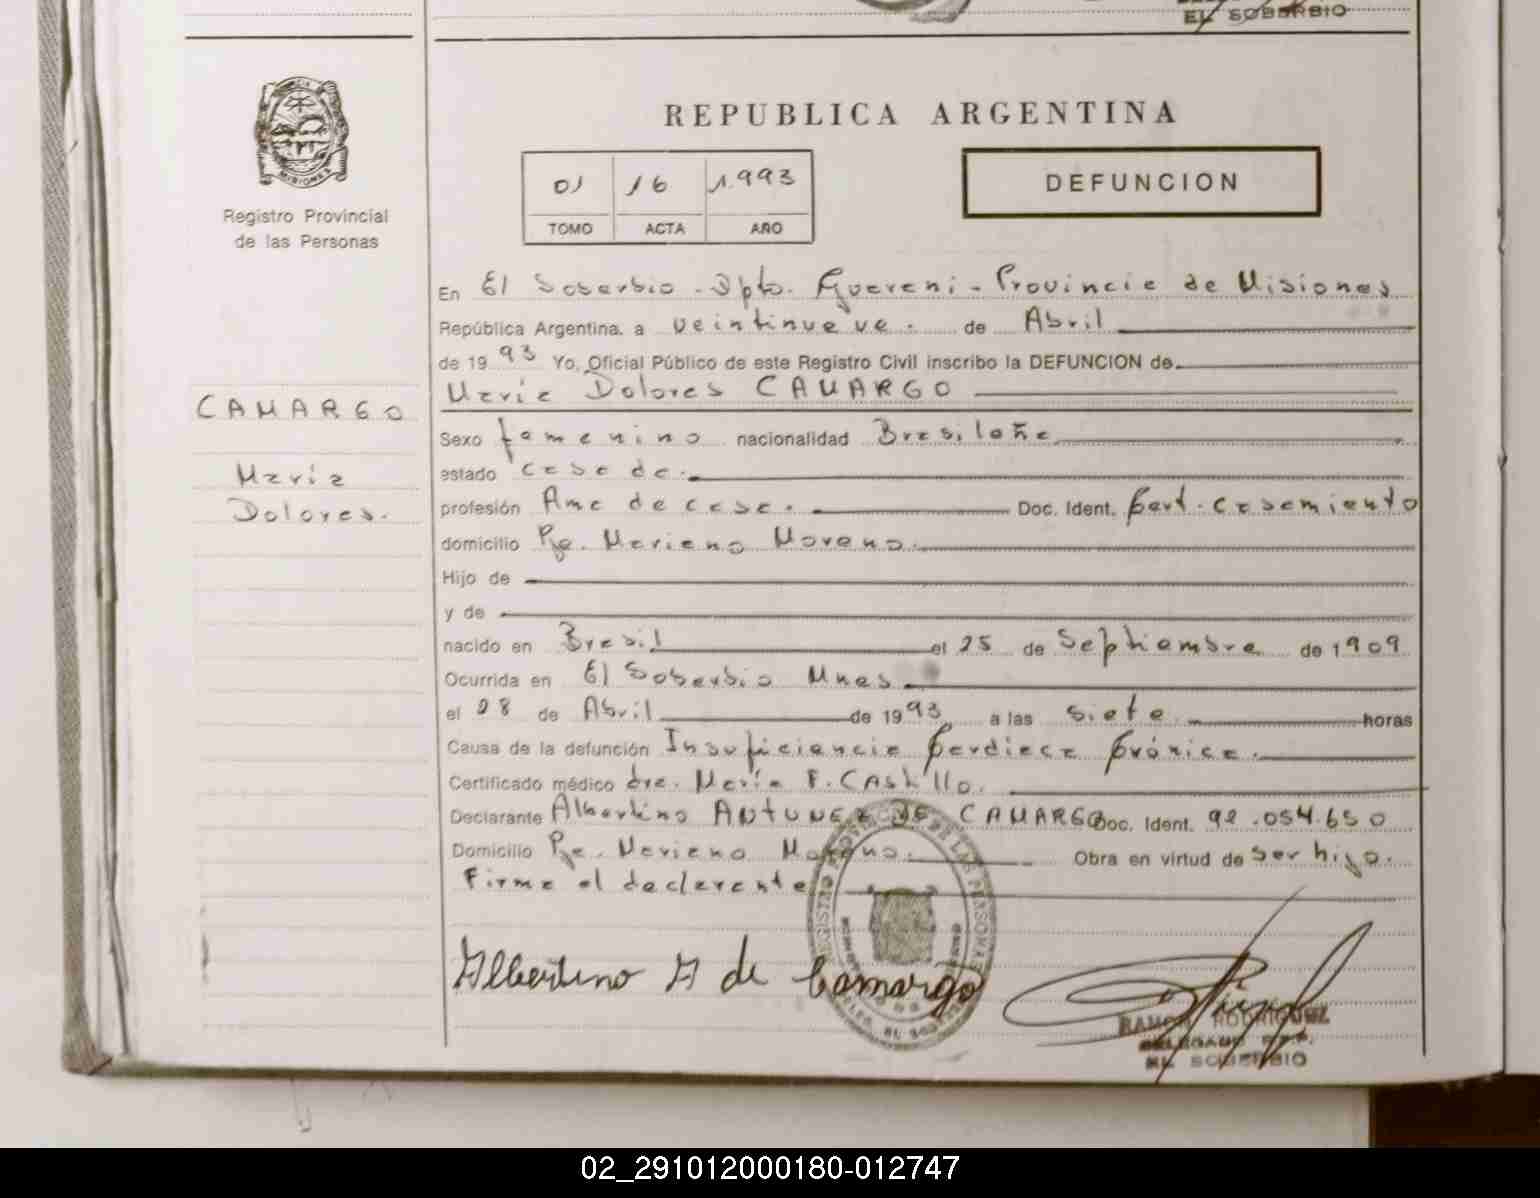 EL SOBERBIO
REPUBLICA ARGENTINA
MISIONES
01 16 1.993
TOMO ACTA AÑO
DEFUNCION
Registro Provincial
de las Personas
En El Soberbio - Dpto. Guarani - Provincia de Misiones
República Argentina, a veintinueve. de Abril
de 1993 Yo, Oficial Público de este Registro Civil inscribo la DEFUNCION de
María Dolores CAMARGO
CAMARGO
María
Dolores.
Sexo femenino nacionalidad Brasileña
estado casada.
profesión Ama de casa. Doc. Ident. Cert. casamiento
domicilio Pje. Mariano Moreno.
Hijo de
y de
nacido en Brasil el 25 de Septiembre de 1909
Ocurrida en El Soberbio Mnes.
el 28 de Abril de 1993 a las siete. horas
Causa de la defunción Insuficiencia Cardiaca Crónica.
Certificado médico dra. María F. CAStillo.
Declarante Albertino ANTUNEZ DE CAMARGO Doc. Ident. 92.054.650
Domicilio Pje. Mariano Moreno. Obra en virtud de ser hijo.
Firma el declarante
REGISTRO PROVINCIAL DE LAS PERSONAS
Albertino A de Camargo
RAMON RODRIGUEZ
DELEGADO R.P.P.
EL SOBERBIO
02_291012000180-012747